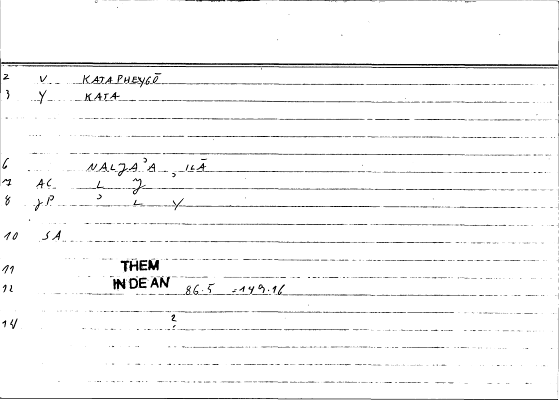 2 V KATAPHEYGŌ
3 Y KATA
6 NALJA'A , ILĀ
7 AC L , J
8 JP ' L Y
10 SA
11 THEM
IN DE AN
12 86.5 =149.16
14 2